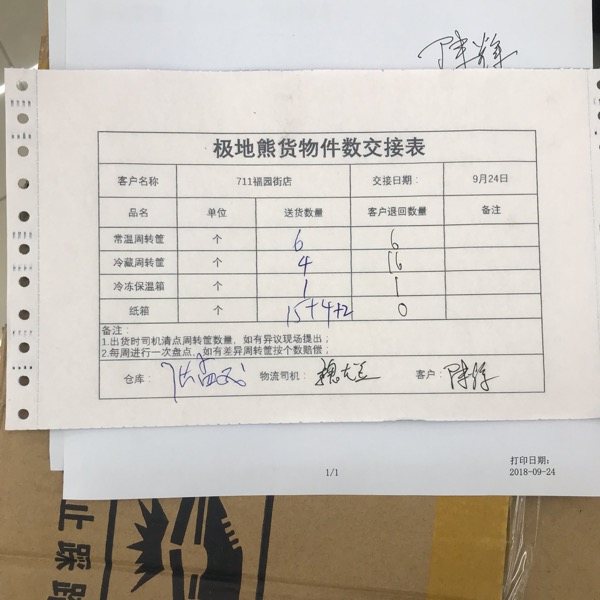 陈辉
极地熊货物件数交接表
客户名称 711福园街店 交接日期： 9月24日
品名 单位 送货数量 客户退回数量 备注
常温周转筐 个 6 6
冷藏周转筐 个 4 16
冷冻保温箱 个 1 1
纸箱 个 15+4+2 0
备注：
1.出货时司机清点周转筐数量，如有异议现场提出；
2.每周进行一次盘点，如有差异周转筐按个数赔偿；
仓库： 物流司机： 客户： 陈辉
打印日期：
1/1 2018-09-24
止踩踏